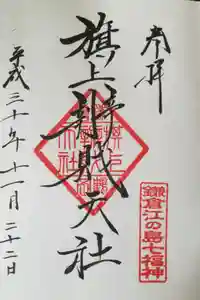 奉拝
旗上弁財天社
平成三十年十一月二十二日
鎌倉江の島七福神